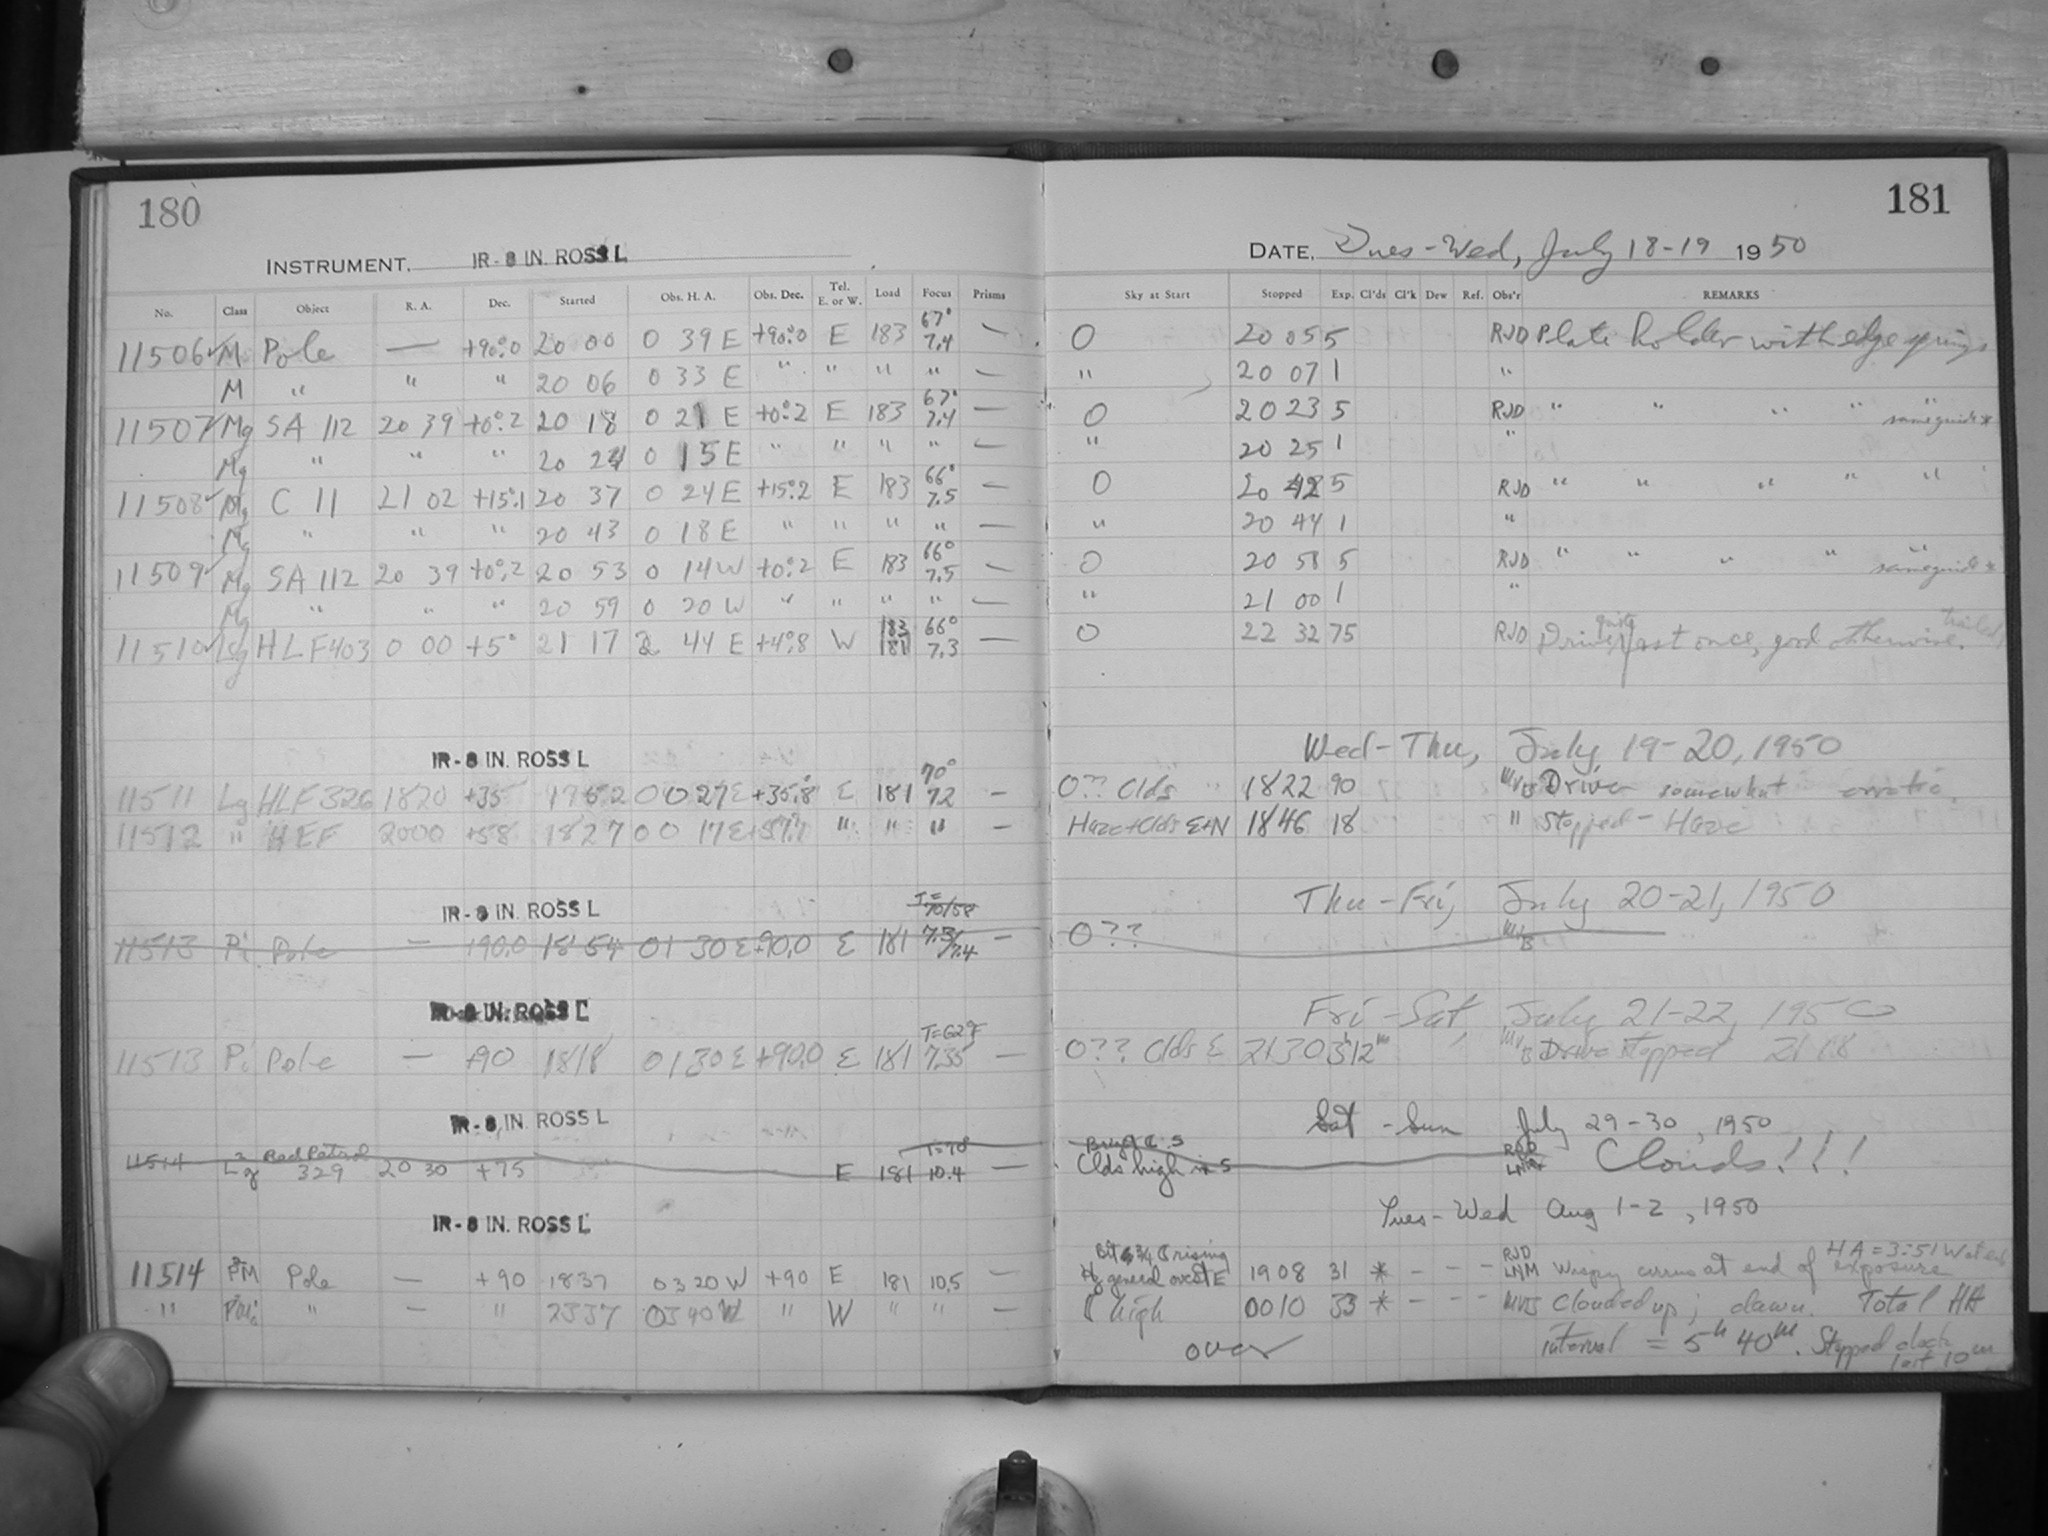 180
INSTRUMENT, IR-8 IN. ROSS L
No. Class Object R. A. Dec. Started Obs. H. A. Obs. Dec. Tel. E. or W. Load Focus Prisms
11506 ✓ M Pole — +90.°0 20 00 0 39 E +90.°0 E 183 67° 7.4 —
M " " " 20 06 0 33 E " " " " —
11507 ✓ Mg SA 112 20 39 +0.°2 20 18 0 21 E +0.°2 E 183 67° 7.4 —
Mg " " " 20 24 0 15 E " " " " —
11508 ✓ Mg C 11 21 02 +15.°1 20 37 0 24 E +15.°2 E 183 66° 7.5 —
Mg " " " 20 43 0 18 E " " " " —
11509 ✓ Mg SA 112 20 39 +0.°2 20 53 0 14 W +0.°2 E 183 66° 7.5 —
Mg " " " 20 59 0 20 W " " " " —
11510 ✓ Lg HLF403 0 00 +5° 21 17 2 44 E +4.°8 W 183 181 66° 7.3 —
IR-8 IN. ROSS L
11511 Lg HLF 326 1820 +35 1752 00 27 E +35.8 E 181 70° 7.2 —
11512 " HEF 2000 +58 1827 00 17 E +57.7 " " " —
IR-8 IN. ROSS L
11513 Pi Pole — +90.0 1854 01 30 E +90.0 E 181 T= 70/58 7.3/7.4 —
IR-8 IN. ROSS L
11513 Pi Pole — +90 1818 01 30 E +90.0 E 181 T=62°F 7.35 —
IR-8 IN. ROSS L
11514 Lg Red Patrol 329 20 30 +75 E 181 T=70 10.4 —
IR-8 IN. ROSS L
11514 PM Pole — +90 1837 03 20 W +90 E 181 10.5 —
" " — " 2337 03 40 W " W " " —
181
DATE, Tues-Wed, July 18-19 1950
Sky at Start Stopped Exp. Cl'ds Cl'k Dew Ref. Obs'r REMARKS
0 20 05 5 RJD Plate holder with edge springs
" 20 07 1 "
0 20 23 5 RJD " " " " " same guide *
" 20 25 1 "
0 20 42 5 RJD " " " " "
" 20 44 1 "
0 20 58 5 RJD " " " " " same guide *
" 21 00 1 "
0 22 32 75 RJD Drive quite fast once, good otherwise. trailed
Wed-Thu, July, 19-20, 1950
0?? Clds 1822 90 MVB Driver somewhat erratic.
Haze + Clds E+N 1846 18 " Stopped - Haze
Thu-Fri, July 20-21, 1950
0?? MVB
Fri-Sat, July 21-22, 1950
0?? Clds E 2130 3h12m MVB Drive stopped 2118
Sat - Sun July 29-30, 1950
Clds high in S RJD LNM Clouds!!!
Tues-Wed Aug 1-2, 1950
rising
general over E 1908 31 * - - - RJD LNM Wispy cirrus at end of exposure HA = 3:51 W at end
high 0010 33 * - - - MVB Clouded up; dawn. Total HA
over interval = 5h 40m. Stopped clock last 10m